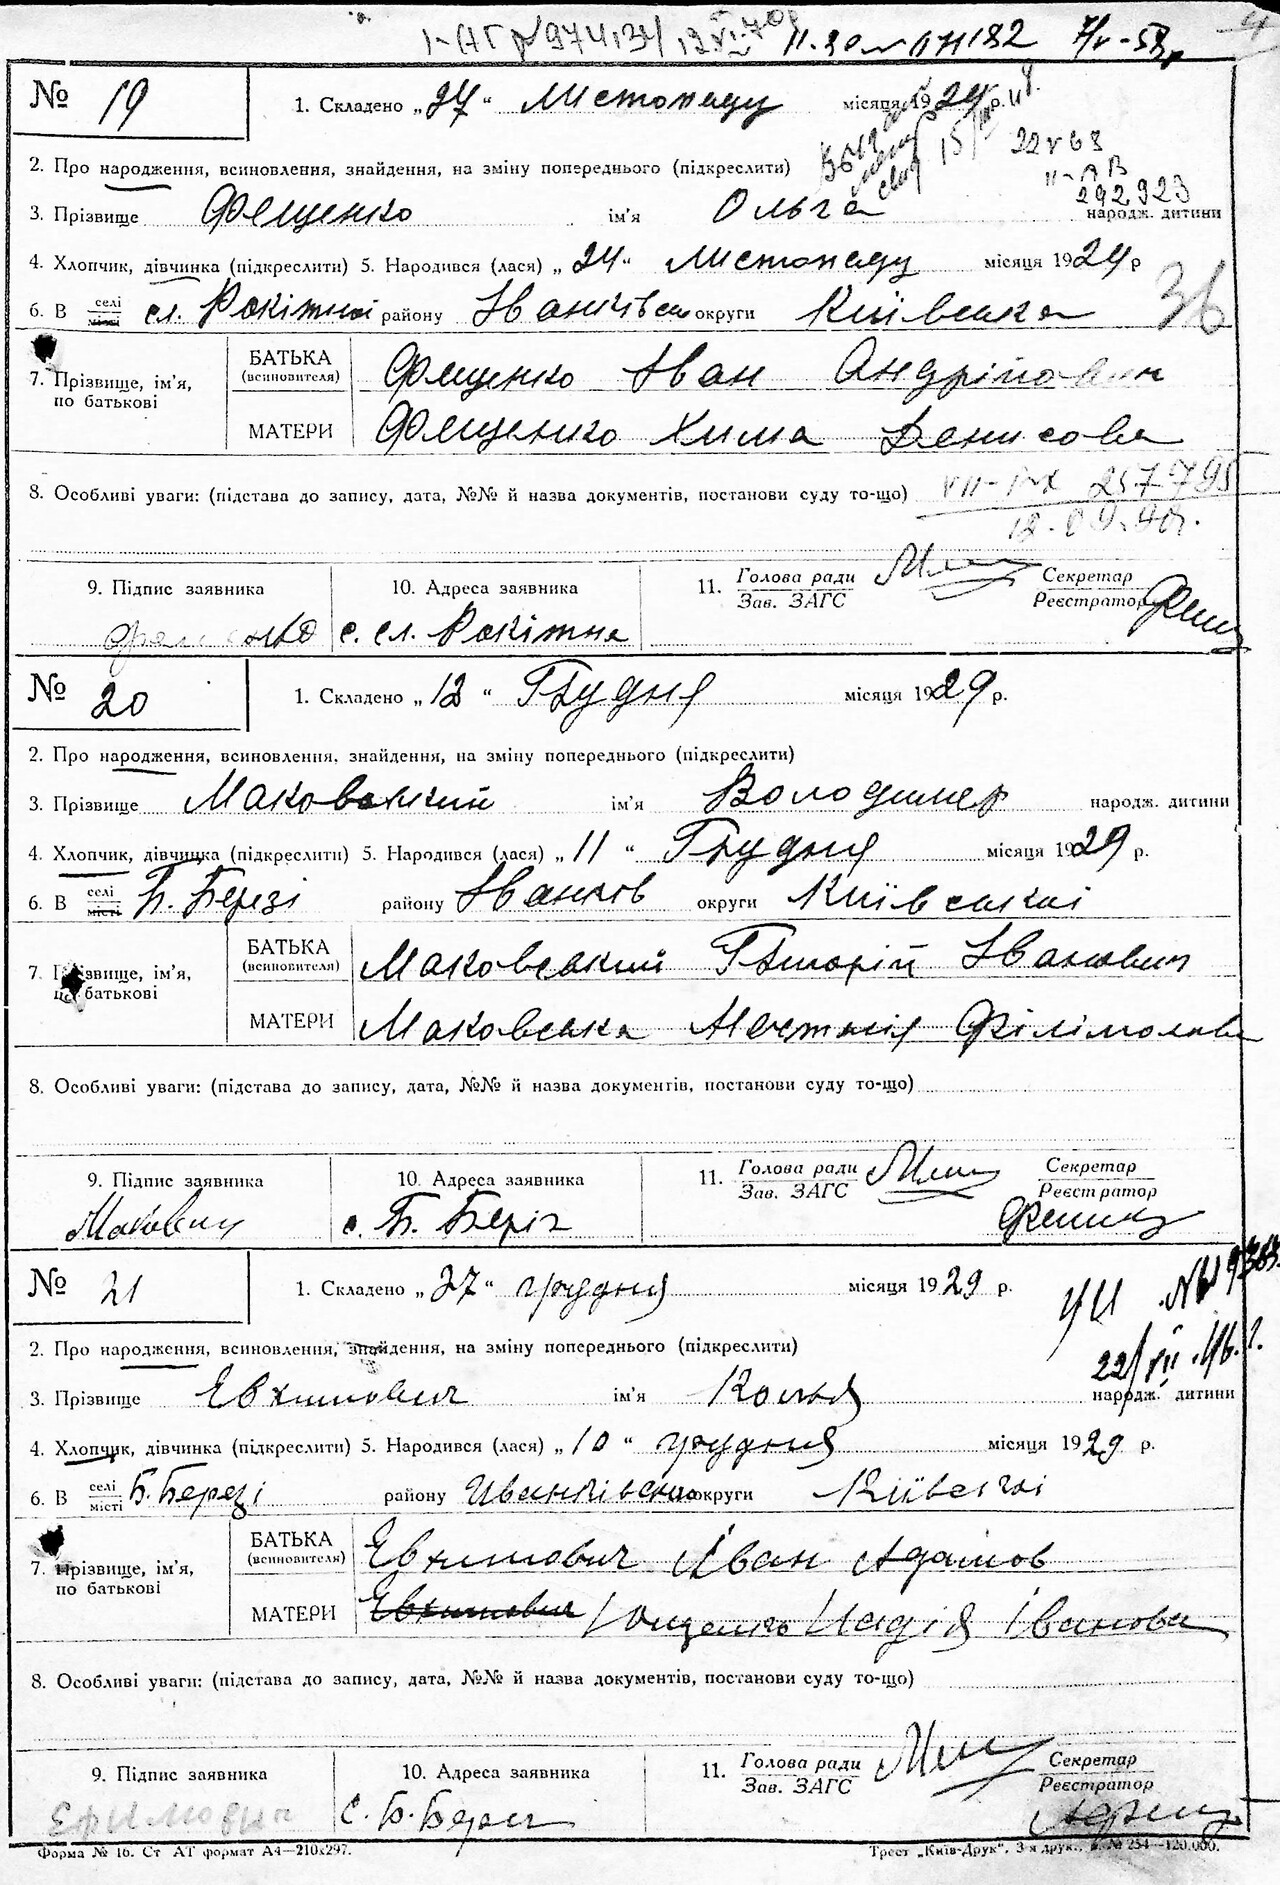 11-80 № 171182 7/V-58р
№ 19
1. Складено „27“ Листопаду місяця 1929 р.
22 V 63
2. Про народження, всиновлення, знайдення, на зміну попереднього (підкреслити)
II-АВ
292923
3. Прізвище Фещенко ім'я Ольга народж. дитини
4. Хлопчик, дівчинка (підкреслити) 5. Народився (лася) „24“ Листопаду місяця 1929 р
6. В селі місті сл. Рокітної району Іванківськ округи Київська
36
7. Прізвище, ім'я, по батькові
БАТЬКА (всиновителя) Фещенко Іван Андрійович
МАТЕРИ Фещенко Хима Денисова
8. Особливі уваги: (підстава до запису, дата, №№ й назва документів, постанови суду то-що) 257795
9. Підпис заявника 10. Адреса заявника 11. Голова ради Зав. ЗАГС Секретар Реєстратор
с. сл. Рокітна
№ 20
1. Складено „12“ Грудня місяця 1929 р.
2. Про народження, всиновлення, знайдення, на зміну попереднього (підкреслити)
3. Прізвище Маковський ім'я Володимер народж. дитини
4. Хлопчик, дівчинка (підкреслити) 5. Народився (лася) „11“ Грудня місяця 1929 р.
6. В селі місті Б. Березі району Іванків округи Київської
7. Прізвище, ім'я, по батькові
БАТЬКА (всиновителя) Маковський Григорій Іванович
МАТЕРИ Маковська Філімонова
8. Особливі уваги: (підстава до запису, дата, №№ й назва документів, постанови суду то-що)
9. Підпис заявника 10. Адреса заявника 11. Голова ради Зав. ЗАГС Секретар Реєстратор
с. Б. Беріг
№ 21
1. Складено „27“ грудня місяця 1929 р.
2. Про народження, всиновлення, знайдення, на зміну попереднього (підкреслити)
22/VII.46.
3. Прізвище Евхимович ім'я Колья народж. дитини
4. Хлопчик, дівчинка (підкреслити) 5. Народився (лася) „10“ грудня місяця 1929 р.
6. В селі місті Б. Березі району Иванківсько округи Київської
7. Прізвище, ім'я, по батькові
БАТЬКА (всиновителя) Евхимович Іван Адамов
МАТЕРИ Евхимович Ющенко Надія Іванова
8. Особливі уваги: (підстава до запису, дата, №№ й назва документів, постанови суду то-що)
9. Підпис заявника 10. Адреса заявника 11. Голова ради Зав. ЗАГС Секретар Реєстратор
Ефимович с. Б. Берег
Форма № 16. Ст АТ формат А4—210х297. Трест „Київ-Друк“. 3-я друк., № 254—120.000.